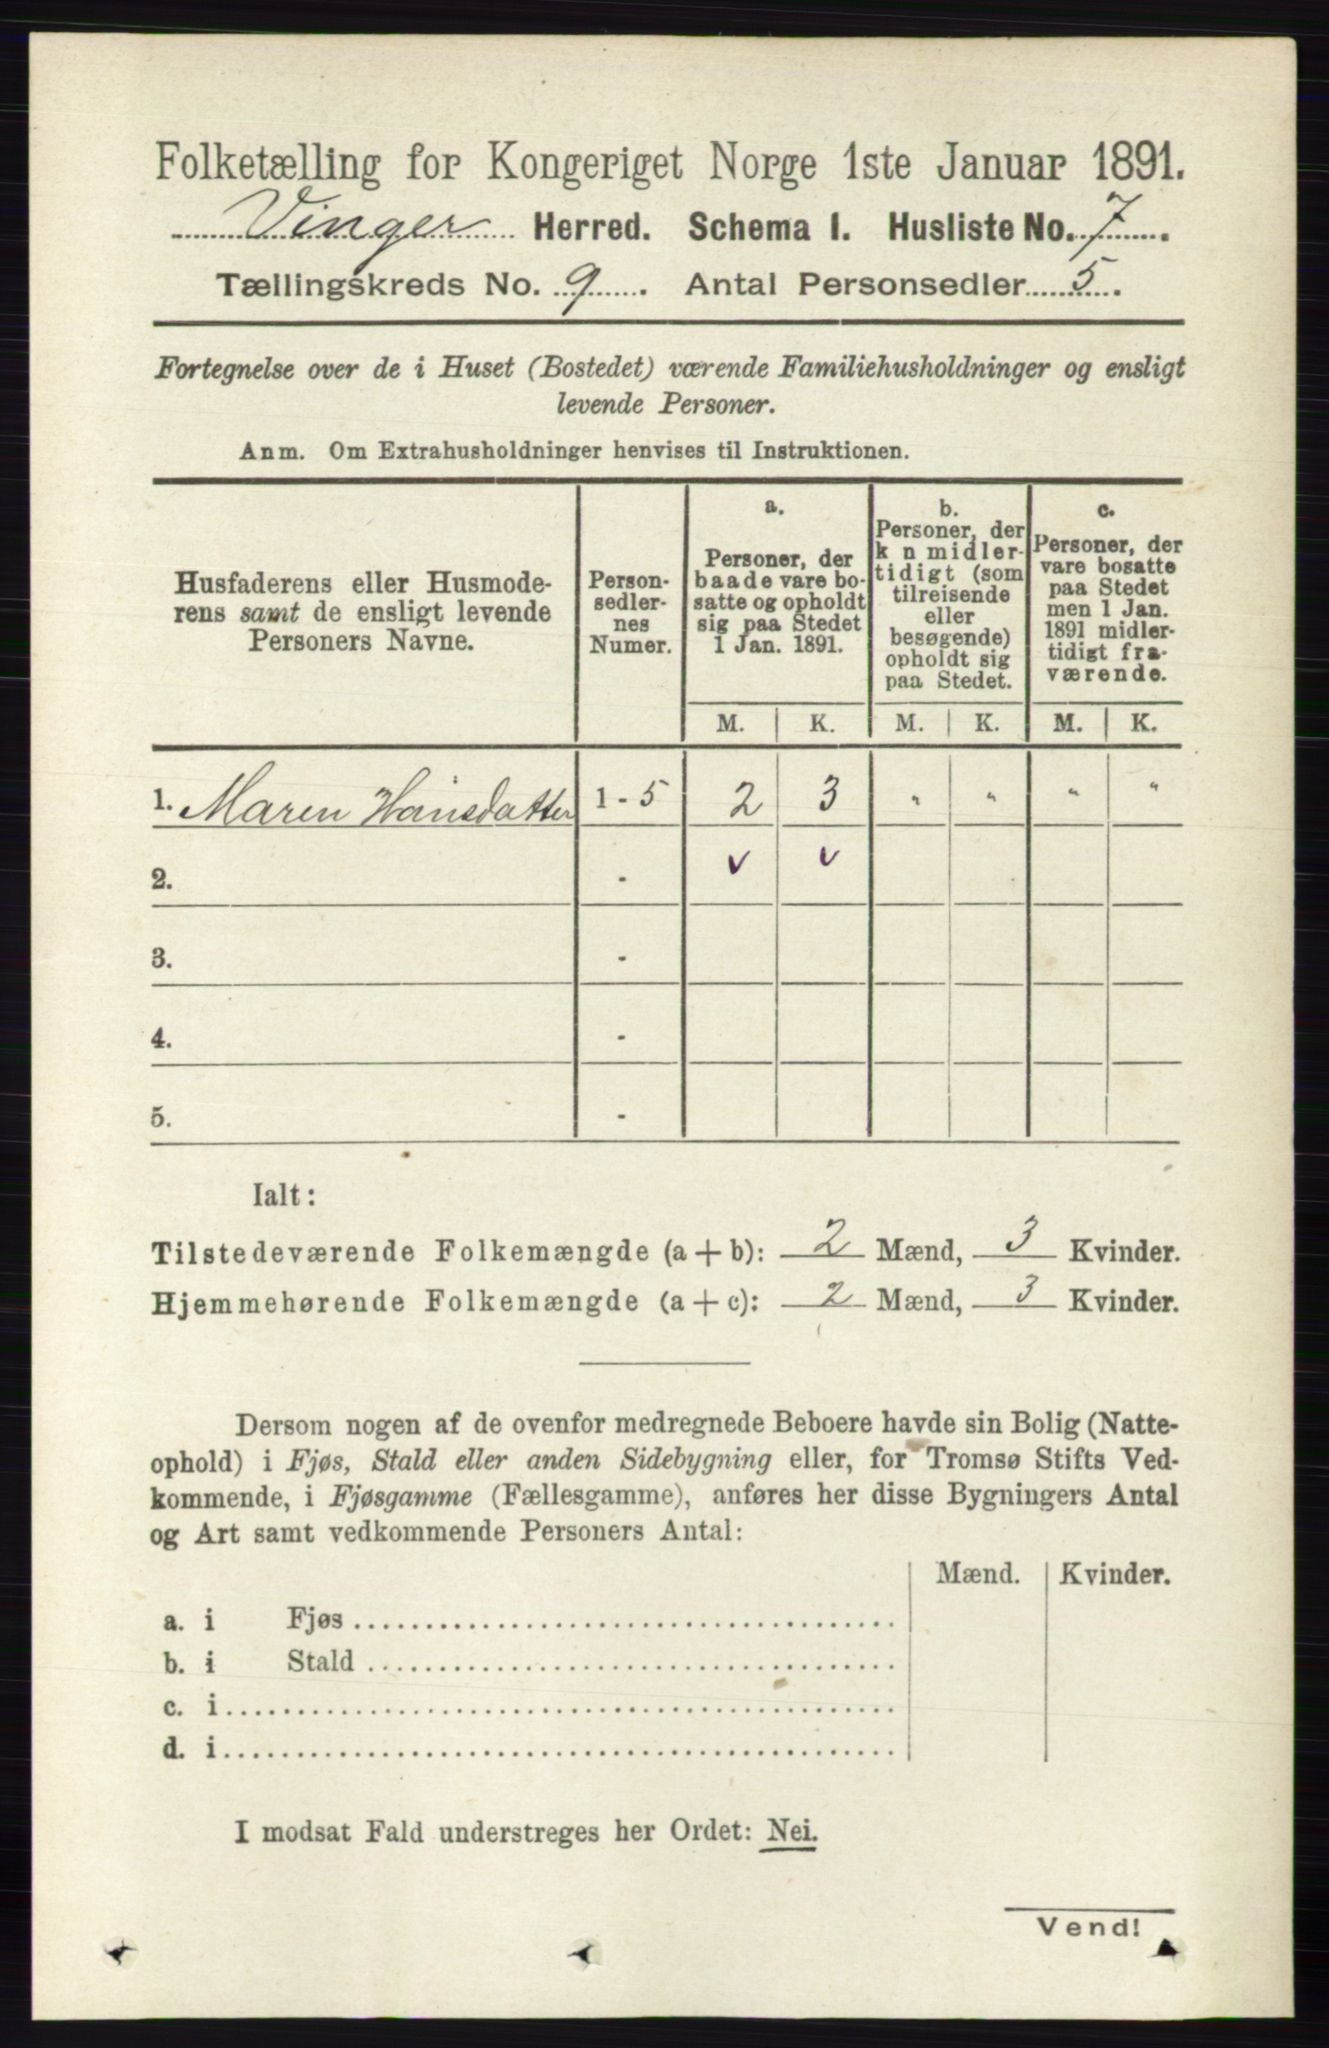 Folketælling for Kongeriget Norge 1ste Januar 1891.
Vinger Herred. Schema I. Husliste No. 7.
Tællingskreds No. 9. Antal Personsedler 5.
Fortegnelse over de i Huset (Bostedet) værende Familiehusholdninger og ensligt
levende Personer.
Anm. Om Extrahusholdninger henvises til Instruktionen.
Husfaderens eller Husmode-
rens samt de ensligt levende
Personers Navne.
Person-
sedler-
nes
Numer.
a.
Personer, der
baade vare bo-
satte og opholdt
sig paa Stedet
1 Jan. 1891.
b.
Personer, der
k n midler-
tidigt (som
tilreisende
eller
besøgende)
opholdt sig
paa Stedet.
c.
Personer, der
vare bosatte
paa Stedet
men 1 Jan.
1891 midler-
tidigt fra-
værende.
M. K. M. K. M. K.
1. Maren Hansdatter 1 - 5 2 3 " " " "
2. - v v
3. -
4. -
5. -
Ialt:
Tilstedeværende Folkemængde (a + b): 2 Mænd, 3 Kvinder.
Hjemmehørende Folkemængde (a + c): 2 Mænd, 3 Kvinder.
Dersom nogen af de ovenfor medregnede Beboere havde sin Bolig (Natte-
ophold) i Fjøs, Stald eller anden Sidebygning eller, for Tromsø Stifts Ved-
kommende, i Fjøsgamme (Fællesgamme), anføres her disse Bygningers Antal
og Art samt vedkommende Personers Antal:
Mænd. Kvinder.
a. i Fjøs
b. i Stald
c. i
d. i
I modsat Fald understreges her Ordet: Nei.
Vend!